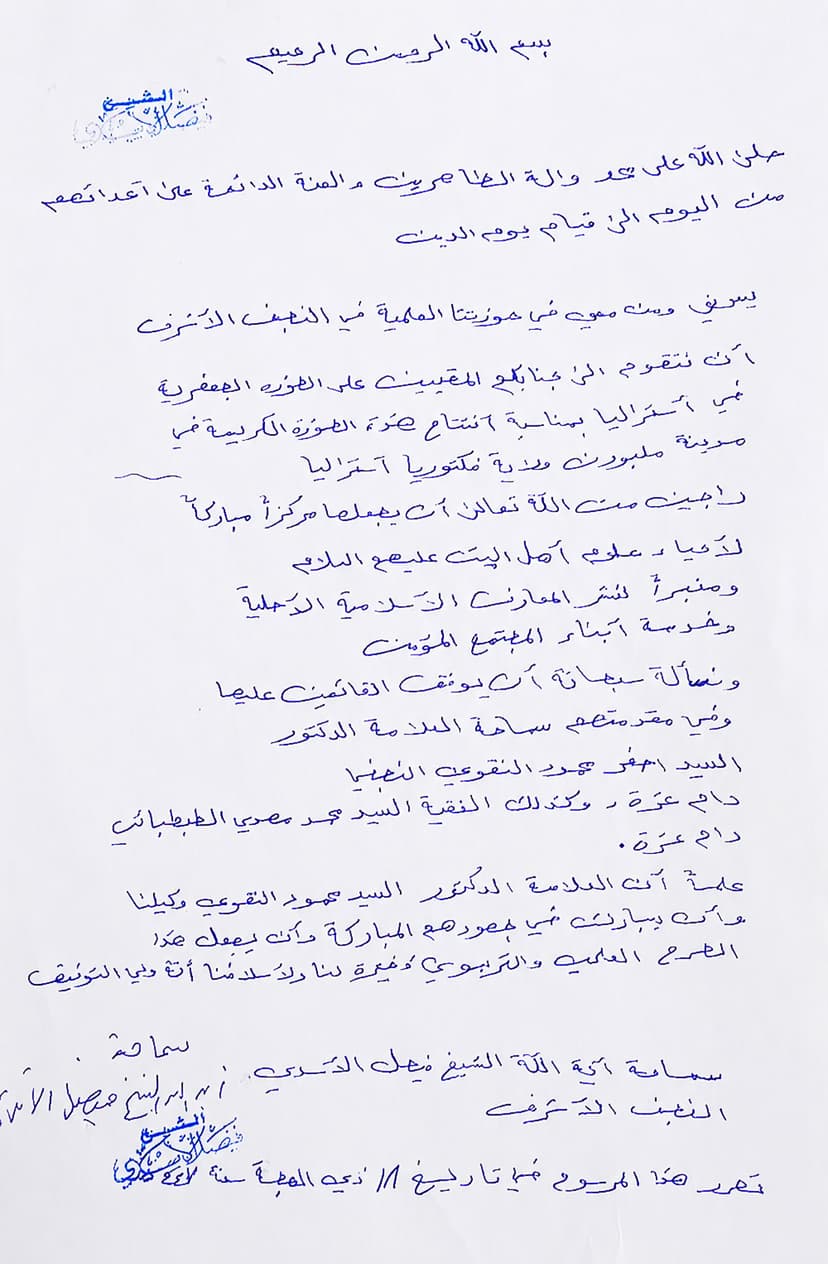 بسم الله الرحمن الرحيم
الشيخ
فيصل الأسدي
صلى الله على محمد وآلة الطاهرين والعنة الدائمة على أعدائهم
من اليوم الى قيام يوم الدين
يسرني ومن معي في حوزتنا العلمية في النجف الأشرف
أن نتقدم الى جنابكم المقيمين على الحوزه الجعفرية
في أستراليا بمناسبة أفتتاح هذه الحوزة الكريمة في
مدينة ملبورن ولاية فكتوريا أستراليا
راجين من الله تعالى أن يجعلها مركزاً مباركاً
لأحياء علوم أهل البيت عليهم السلام
ومنبراً لنشر المعارف الأسلامية الأصلية
وخدمة أبناء المجتمع المؤمن
ونسألة سبحانة أن يوفق القائمين عليها
وفي مقدمتهم سماحة العلامة الدكتور
السيد محمود النقوي النجفي
دام عزة، وكذلك الفقية السيد محمد مهدي الطبطبائي
دام عزة.
علماً أن العلامة الدكتور السيد محمود النقوي وكيلنا
وأن يبارك في جهودهم المباركة وأن يجعل هذا
الصرح العلمي والتربوي ذخيرة لنا ولأسلامنا أنة ولي التوفيق
سماحة
سماحة آية اللة الشيخ فيصل الأسدي
الشيخ فيصل الأسدي
النجف الأشرف
الشيخ
فيصل الأسدي
تحرر هذا المرسوم في تاريخ ١٨ ذي الحجة سنة